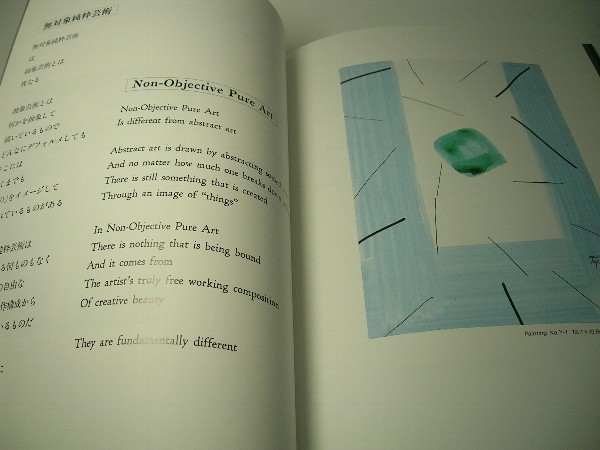 無対象純粋芸術
無対象純粋芸術
は
抽象芸術とは
異なる
抽象芸術とは
何かを抽象して
描いているもので
どんなにデフォルメしても
こには
くまでも
」をイメージして
れているものがある
純粋芸術は
る何ものもなく
の自由な
作構成から
いるものだ
に
Non-Objective Pure Art
Non-Objective Pure Art
Is different from abstract art
Abstract art is drawn by abstracting
And no matter how much one breaks
There is still something that is created
Through an image of "things"
In Non-Objective Pure Art
There is nothing that is being bound
And it comes from
The artist's truly free working composition
Of creative beauty
They are fundamentally different
Painting. No.Y-1